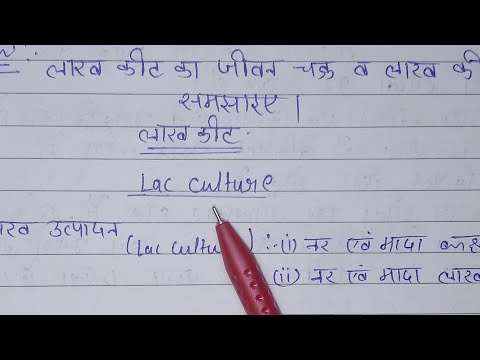 लाख कीट का जीवन चक्र व लाख की
समझाइए।
लाख कीट
Lac Culture
लाख उत्पादन (Lac Cultu ) :- (i) नर एवं मादा
(ii) नर एवं मादा लाख